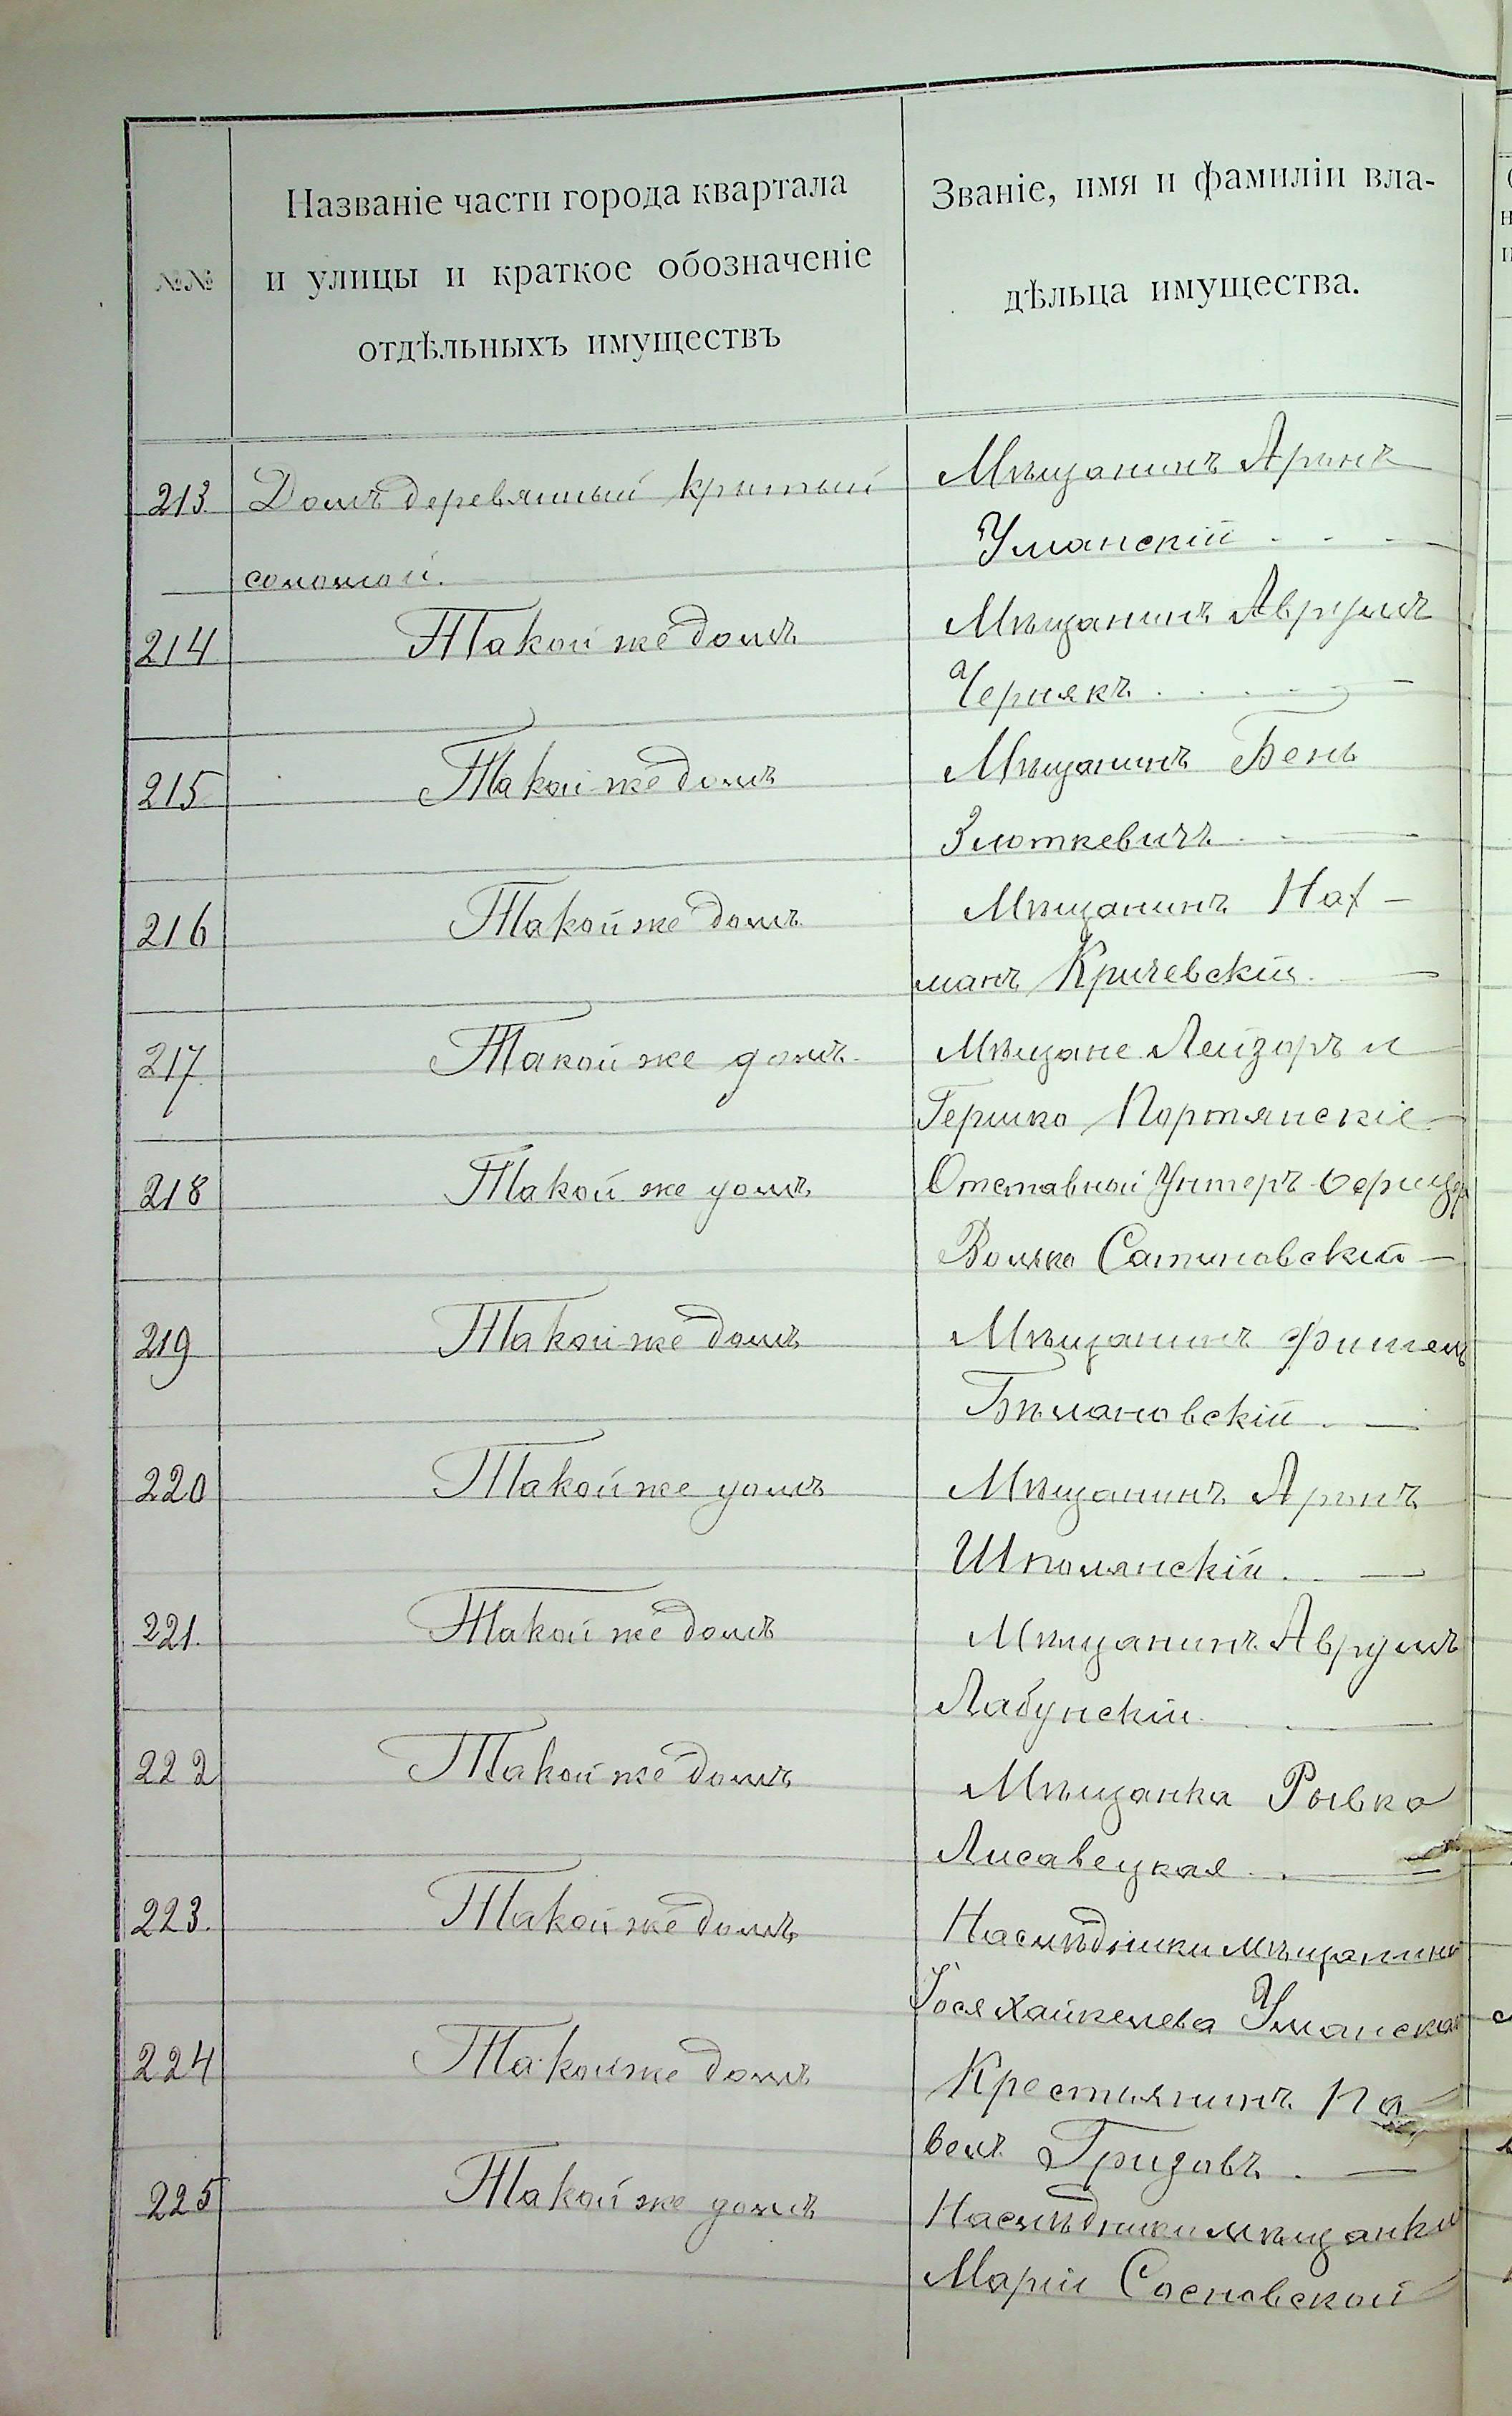 №№
Названіе части города квартала
и улицы и краткое обозначеніе
отдѣльныхъ имуществъ
Званіе, имя и фамиліи вла-
дѣльца имущества.
213. Домъ деревянный крытый
соломой.
Мѣщанинъ Аронъ
Уманскій
214 Такой же домъ
Мѣщанинъ Аврумъ
Чернякъ
215 Такой же домъ
Мѣщанинъ Бень
Злоткевичъ
216 Такой же домъ
Мѣщанинъ Нах-
манъ Кричевскій
217 Такой же домъ
Мѣщане Лейзоръ и
Гершко Портянскіе
218 Такой же домъ
Отставной Унтеръ-Офицеръ
Волько Сатановскій
219 Такой же домъ
Мѣщанинъ Фишель
Бѣлановскій
220 Такой же домъ
Мѣщанинъ Аронъ
Шполянскій
221. Такой же домъ
Мѣщанинъ Аврумъ
Лабунскій
222 Такой же домъ
Мѣщанка Рывка
Лисавецкая
223. Такой же домъ
Наслѣдники мѣщанина
Хайкелева Уманская
224 Такой же домъ
Крестьянинъ Па-
велъ Гризовъ
225 Такой же домъ
Наслѣдники мѣщанки
Маріи Сосновской